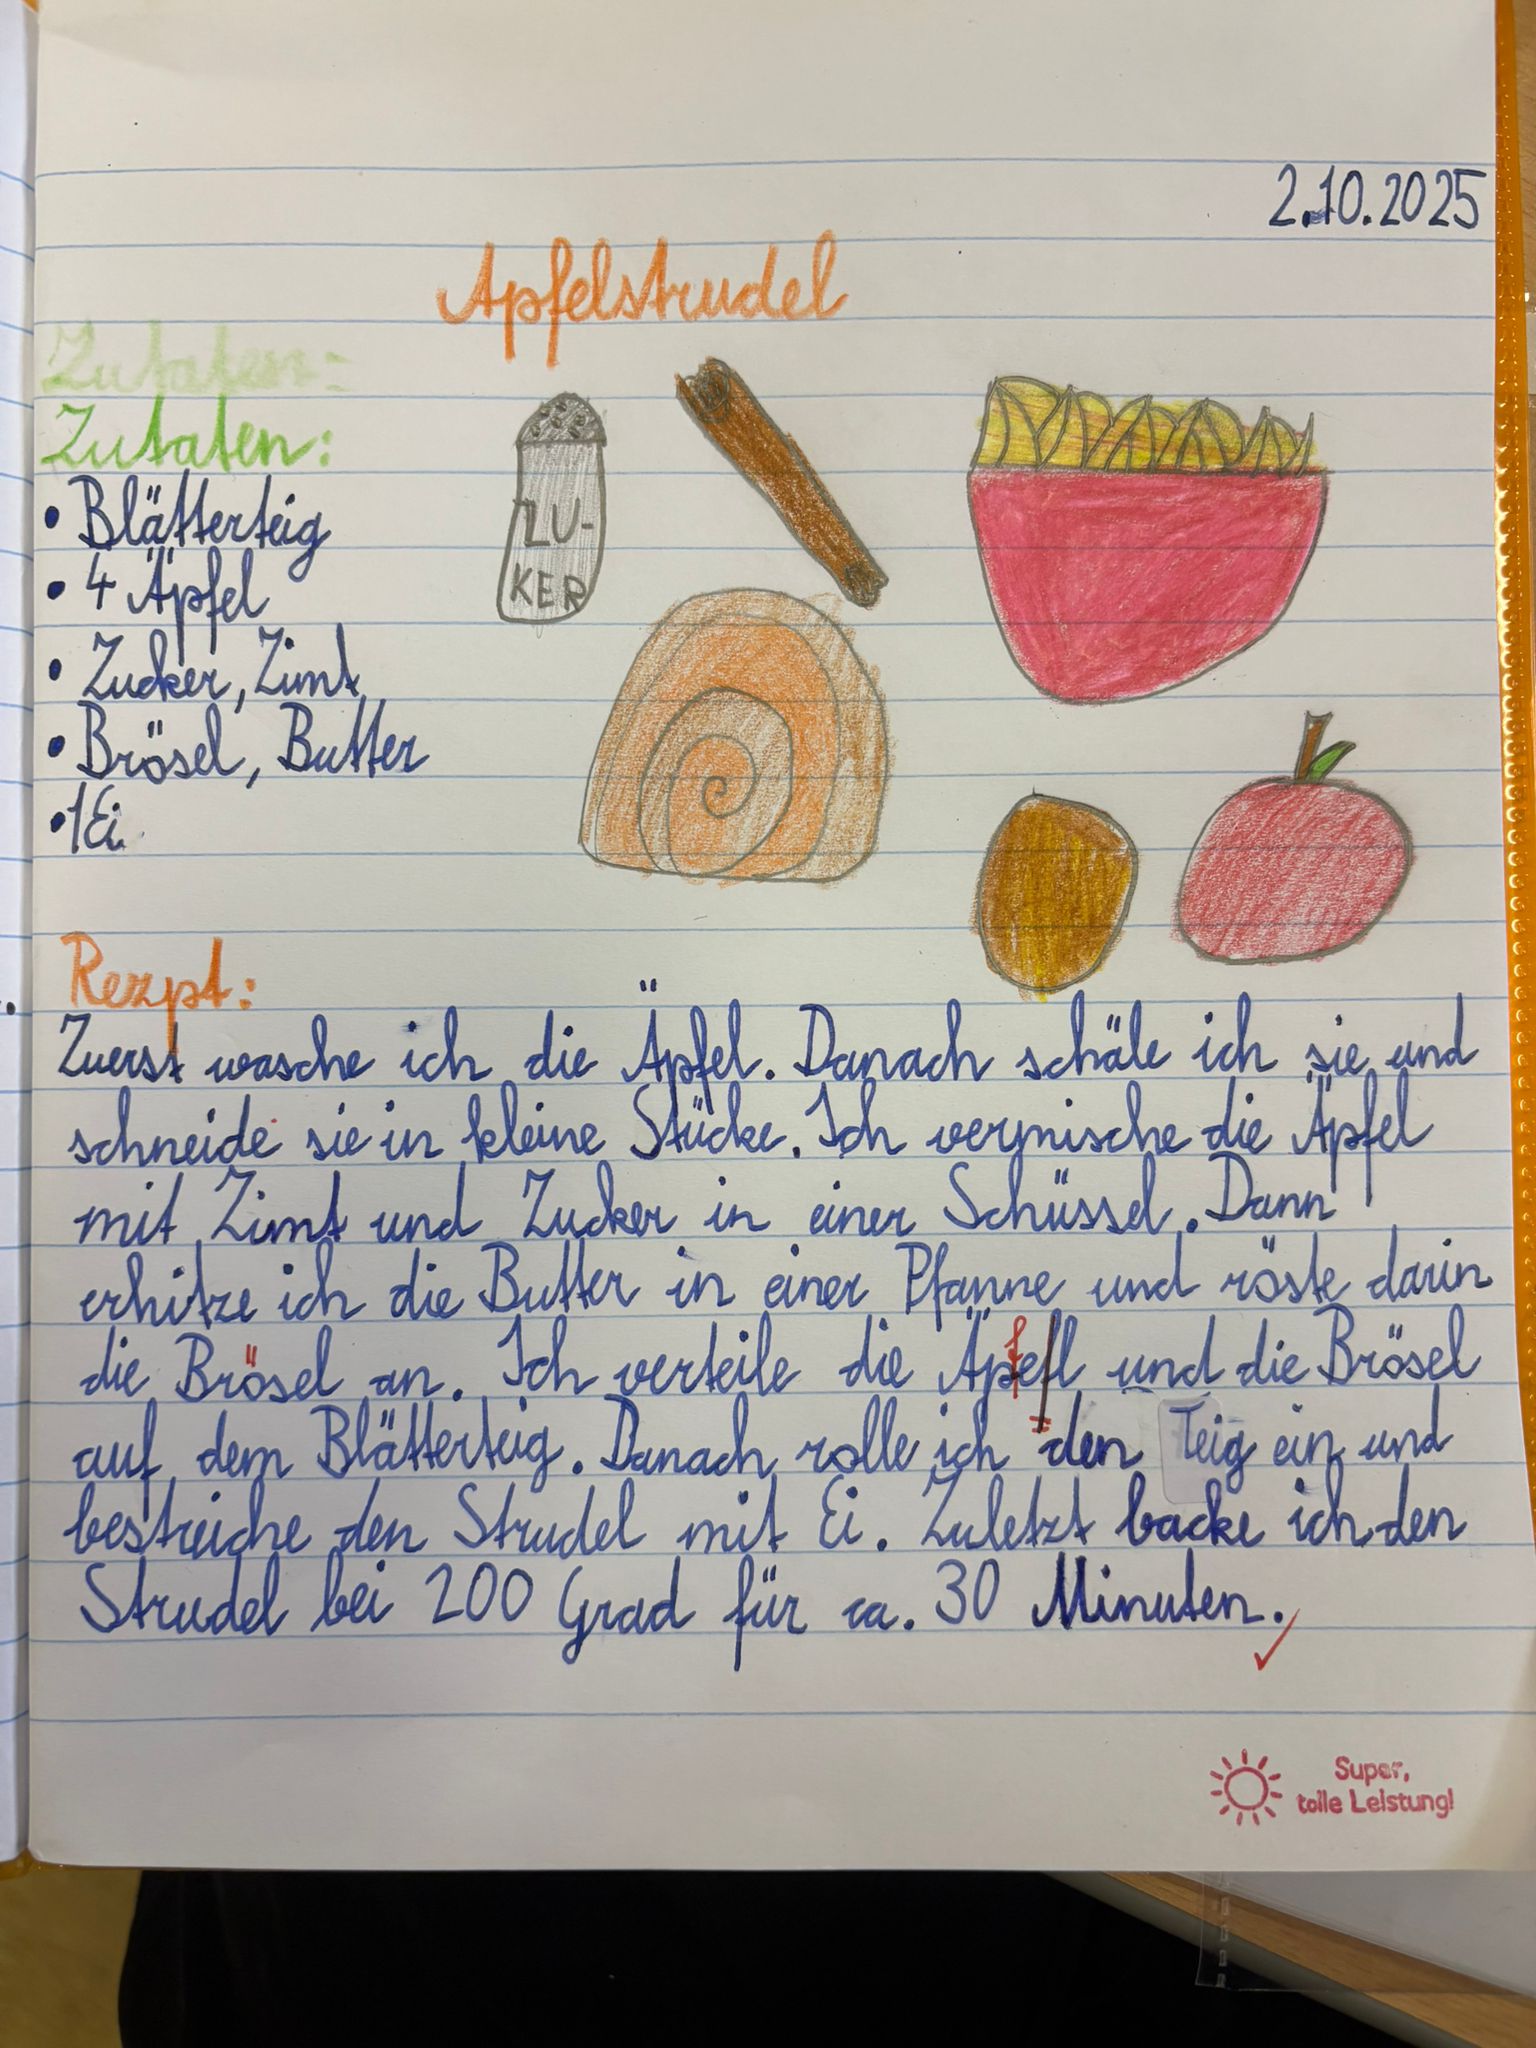 2.10.2025
Apfelstrudel
Zutaten:
Zutaten:
• Blätterteig
• 4 Äpfel
• Zucker, Zimt
• Brösel, Butter
• 1 Ei
ZU-
KER
Rezpt:
Zuerst wasche ich die Äpfel. Danach schäle ich sie und
schneide sie in kleine Stücke. Ich vermische die Äpfel
mit Zimt und Zucker in einer Schüssel. Dann
erhitze ich die Butter in einer Pfanne und röste darin
die Brösel an. Ich verteile die Äpfel und die Brösel
auf dem Blätterteig. Danach rolle ich den Teig ein und
bestreiche den Strudel mit Ei. Zuletzt backe ich den
Strudel bei 200 Grad für ca. 30 Minuten.
Super,
tolle Leistung!